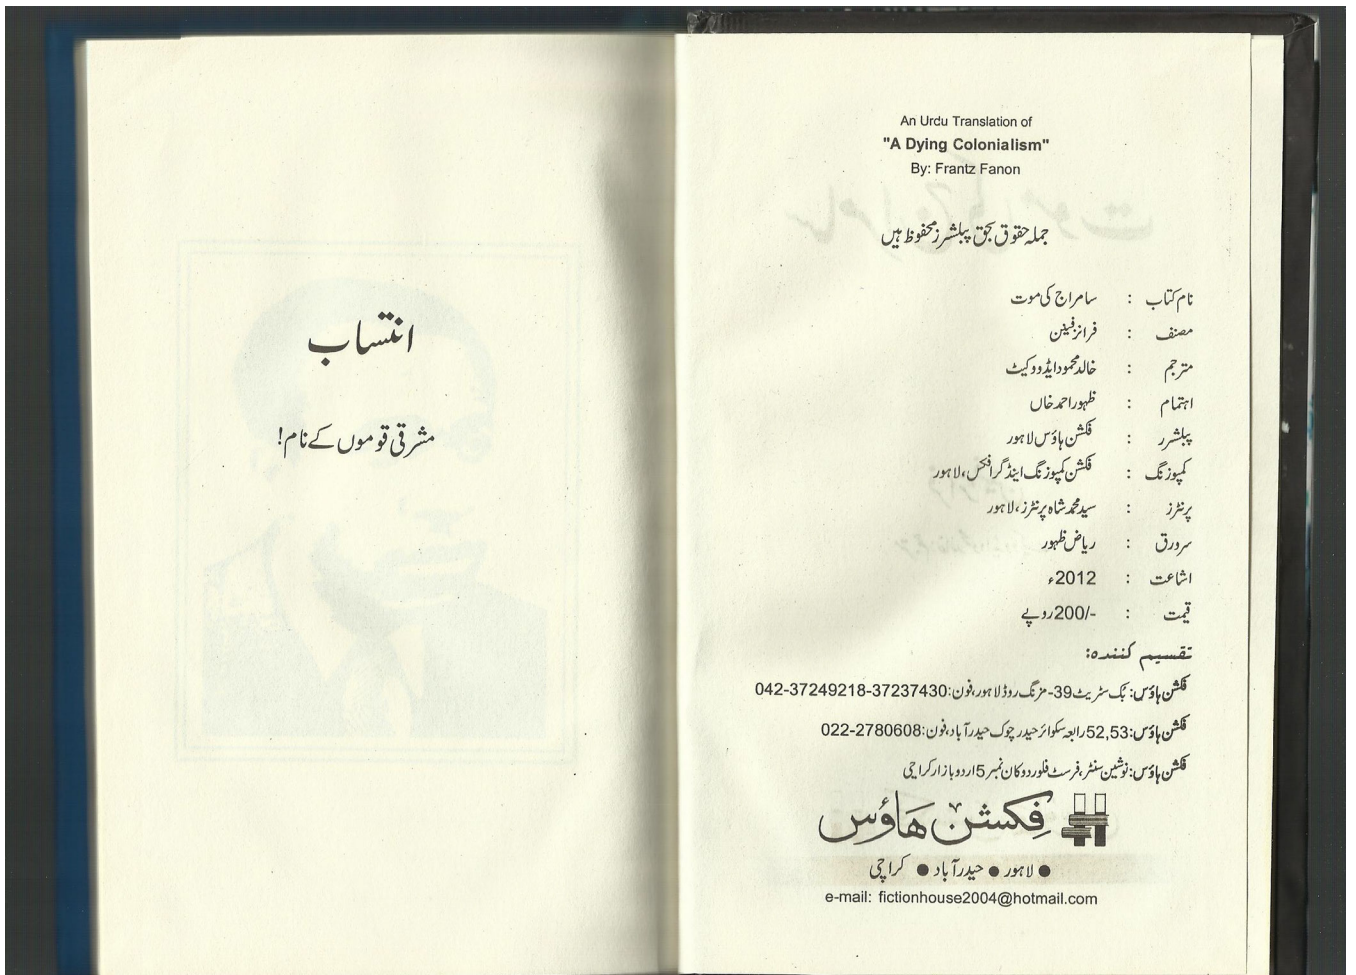 An Urdu Translation of
"A Dying Colonialism"
By: Frantz Fanon
جملہ حقوق بحق پبلشرز محفوظ ہیں
نام کتاب : سامراج کی موت
مصنف : فرانز فینن
مترجم : خالد محمود ایڈووکیٹ
اہتمام : ظہور احمد خاں
پبلشرر : فکشن ہاؤس لاہور
کمپوزنگ : فکشن کمپوزنگ اینڈ گرافکس، لاہور
پرنٹرز : سید محمد شاہ پرنٹرز، لاہور
سرورق : ریاض ظہور
اشاعت : 2012ء
قیمت : -/200 روپے
تقسیم کنندہ:
فکشن ہاؤس: بک سٹریٹ 39- مزنگ روڈ لاہور، فون: 042-37249218-37237430
فکشن ہاؤس: 52,53 رابعہ سکوائر حیدر چوک حیدرآباد، فون: 022-2780608
فکشن ہاؤس: نوشین سنٹر، فرسٹ فلور دوکان نمبر 5 اردو بازار کراچی
فکشن ہاؤس
● لاہور ● حیدرآباد ● کراچی
e-mail: fictionhouse2004@hotmail.com
انتساب
مشرقی قوموں کے نام!